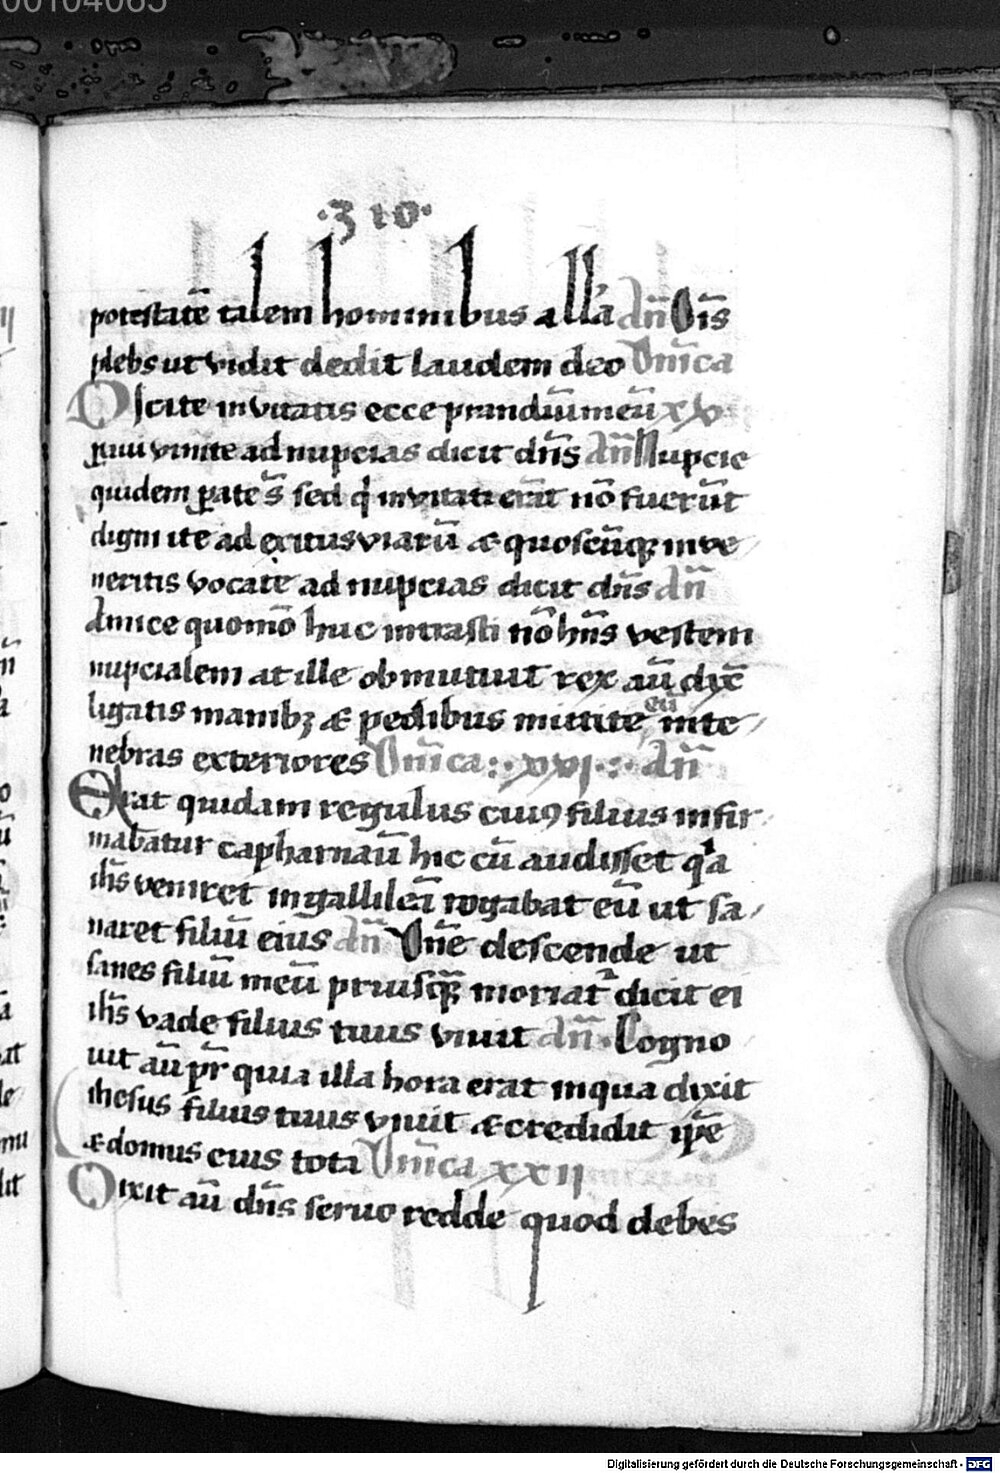 00104065
·310·
potestatē talem hominibus alla An̄ Oīs
plebs ut vidit dedit laudem deo Dnīca
Dicite invitatis ecce prandiū meū xv
paravi venite ad nupcias dicit dn̄s An̄ Nupcie
quidem parate s̄ sed q̄ invitati erāt nō fuerūt
digni ite ad exitus viarū & quoscūq; inve
neritis vocate ad nupcias dicit dn̄s An̄
Amice quomō huc intrasti nō hn̄s vestem
nupcialem at ille obmutuit rex aū dix̄
ligatis manib; & pedibus mittite eū in te
nebras exteriores Dnīca: xx: An̄
Erat quidam regulus cui9 filius infir
mabatur capharnaū hic cū audisset qa
ihs̄ veniret in gallileā rogabat eū ut sa
naret filiū eius An̄ Dn̄e descende ut
sanes filiū meū priusq̄ moriat dicit ei
ihs̄ vade filius tuus vivit An̄. Cogno
vit aū pr̄ quia illa hora erat in qua dixit
ihesus filius tuus vivit & credidit ip̄e
& domus eius tota Dnīca xxii
Dixit aū dn̄s servo redde quod debes
Digitalisierung gefördert durch die Deutsche Forschungsgemeinschaft - DFG